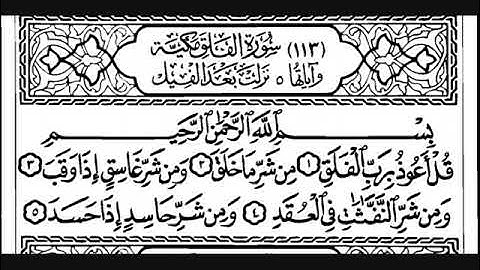 (١١٣) سُورَةُ الفَلَقِ مَكِيَّة
وَآيَاتُهَا ٥ نَزَلَتْ بَعْدَ الفِيْل
بِسْمِ ٱللَّهِ ٱلرَّحْمَٰنِ ٱلرَّحِيمِ
قُلْ أَعُوذُ بِرَبِّ ٱلْفَلَقِ ١ مِن شَرِّ مَا خَلَقَ ٢ وَمِن شَرِّ غَاسِقٍ إِذَا وَقَبَ ٣
وَمِن شَرِّ ٱلنَّفَّٰثَٰتِ فِي ٱلْعُقَدِ ٤ وَمِن شَرِّ حَاسِدٍ إِذَا حَسَدَ ٥